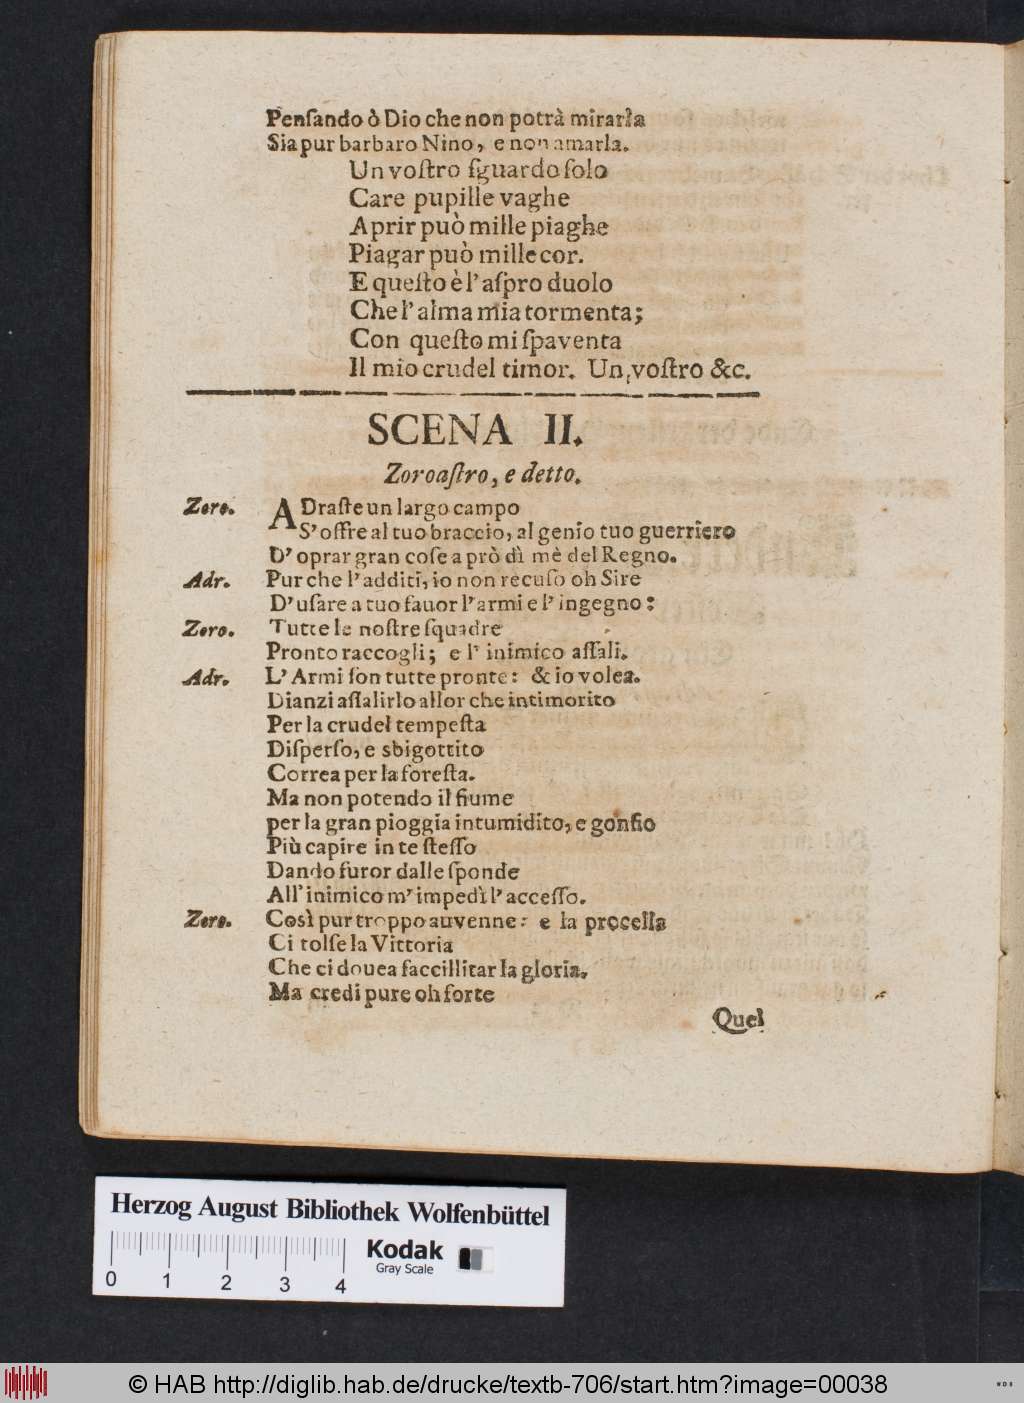 Penſando ò Dio che non potrà mirarla
Sia pur barbaro Nino, e non amarla.
Un voſtro ſguardo ſolo
Care pupille vaghe
Aprir può mille piaghe
Piagar può mille cor.
E queſto è l' aſpro duolo
Che l' alma mia tormenta;
Con queſto mi ſpaventa
Il mio crudel timor. Un voſtro &c.
SCENA II.
Zoroaſtro, e detto.
Zoro. ADraſte un largo campo
S' offre al tuo braccio, al genio tuo guerriero
D' oprar gran coſe a prò dì mè del Regno.
Adr. Pur che l' additi, io non recuſo oh Sire
D' uſare a tuo favor l' armi e l' ingegno:
Zoro. Tutte le noſtre ſquadre
Pronto raccogli; e l' inimico aſſali.
Adr. L' Armi ſon tutte pronte: & io volea.
Dianzi aſſalirlo allor che intimorito
Per la crudel tempeſta
Diſperſo, e sbigottito
Correa per la foreſta.
Ma non potendo il fiume
per la gran pioggia intumidito, e gonfio
Più capire in te ſteſſo
Dando furor dalle ſponde
All' inimico m' impedì l' acceſſo.
Zoro. Così pur troppo auvenne: e la procella
Ci tolſe la Vittoria
Che ci douea faccillitar la gloria.
Ma credi pure oh forte
Quel
Herzog August Bibliothek Wolfenbüttel
0 1 2 3 4
Kodak
Gray Scale
© HAB http://diglib.hab.de/drucke/textb-706/start.htm?image=00038